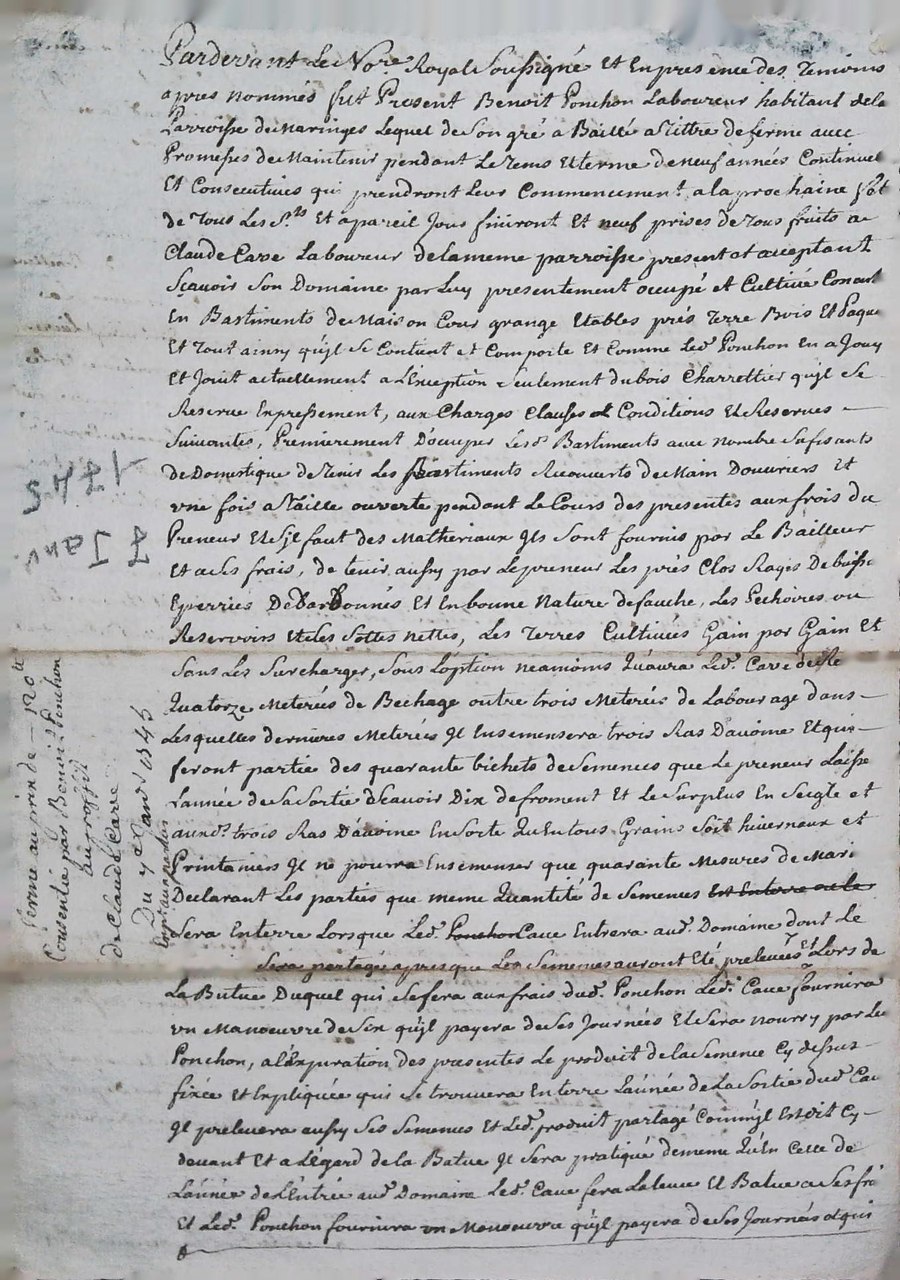 Pardevant Le No.re Royal Soussigné Et En presence des Temoins
apres nommés fut Present Benoit Ponchon Laboureur habitant de la
Parroisse de Maringes Lequel de Son gré a Baillé a Tittre de ferme avec
Promesses de Maintenir pendant Le Tems Et terme de neuf années Continuel
Et Consecutives qui prendront Leur Commencement a la prochaine fet
de Tous Les S.ts Et a pareil Jour finiront Et neuf prises de Tous fruits a
Claude Cave Laboureur de la meme parroisse present et acceptant
Sçavoir Son Domaine par Luy presentement occupé et Cultivé
En Bastiments de Maison Cour grange Etables prés Terre Bois Et Paque
Et Tout ainsy qu'jl Se Contient et Comporte Et Comme Led. Ponchon En a Jouy
Et Jouit actuellement a L'Exception Seulement du bois Charrettier qu'jl Se
Reserve Expressement, aux Charges Clauses et Conditions Et Reserves
Suivantes, Premierement D'occuper Lesd. Bastiments avec nombre Sufisants
de Domestique de Tenir Les Bastiments Recouverts de Main D'ouvriers Et
vne fois a Taille ouverte pendant Le Cours des presentes aux frois du
Preneur Et S'jl faut des Matheriaux Jls Sont fournis par Le Bailleur
Et a Ses frais, de tenir aussy par Le preneur Les prés Clos Ragés De
Eperriés Et En bonne Nature de fauche, Les ou
Reservoirs Et Les nettes, Les Terres Cultivées Gain por Gain Et
Sans Les Surcharger, Sous L'option neamoins Qu'aura Led. Cave de
Quatorze Meterés de Bechage outre trois Meterés de Labourage dans
Lesquelles dernieres Meterés Jl Ensemensera trois Ras D'avoine Et qui
feront partie des quarante bichets de Semences que Le preneur Laisse
L'année de Sa Sortie Sçavoir Dix de froment Et Le Surplus En Seigle et
auxd. trois Ras D'avoine En Sorte Qu'En tous Grains Soit hivernaux et
Printaniers Jl ne pourra Ensemenser que quarante Mesures de
Declarant Les parties que meme Quantité de Semences Est Enterre
Sera Enterre Lorsque Led. Ponchon Cave Entrera aud. Domaine dont Le
Sera partagé apres que Les Semences auront Eté prelevées Et Lors de
La Butue Duquel qui Se fera aux frais dud. Ponchon Led. Cave fournira
vn Manoeuvre qu'jl payera de Ses Journées Et Sera nourry par Led
Ponchon, a L'Expiration des presentes Le produit de la Semence Cy dessus
fixée et Expliquée qui Se trouvera En terre L'année de La Sortie dud. Cav
Jl prelevera aussy Ses Semences Et Led. produit partagé Comm'jl Est dit Cy
devant Et a L'Egard de la Batue Jl Sera pratiqué de meme Qu'En Celle de
L'année de L'Entrée aud. Domaine Led. Cave fera La Et Batue a Ses frai
Et Led. Ponchon fournira vn Manoeuvre qu'jl payera de Ses Journées et qui
1745
7 Janv.
Ferme au prix de — 120 tt
Consentie par Benoit Ponchon
au proffit
de Claude Cave
Du 7e Janv. 1745